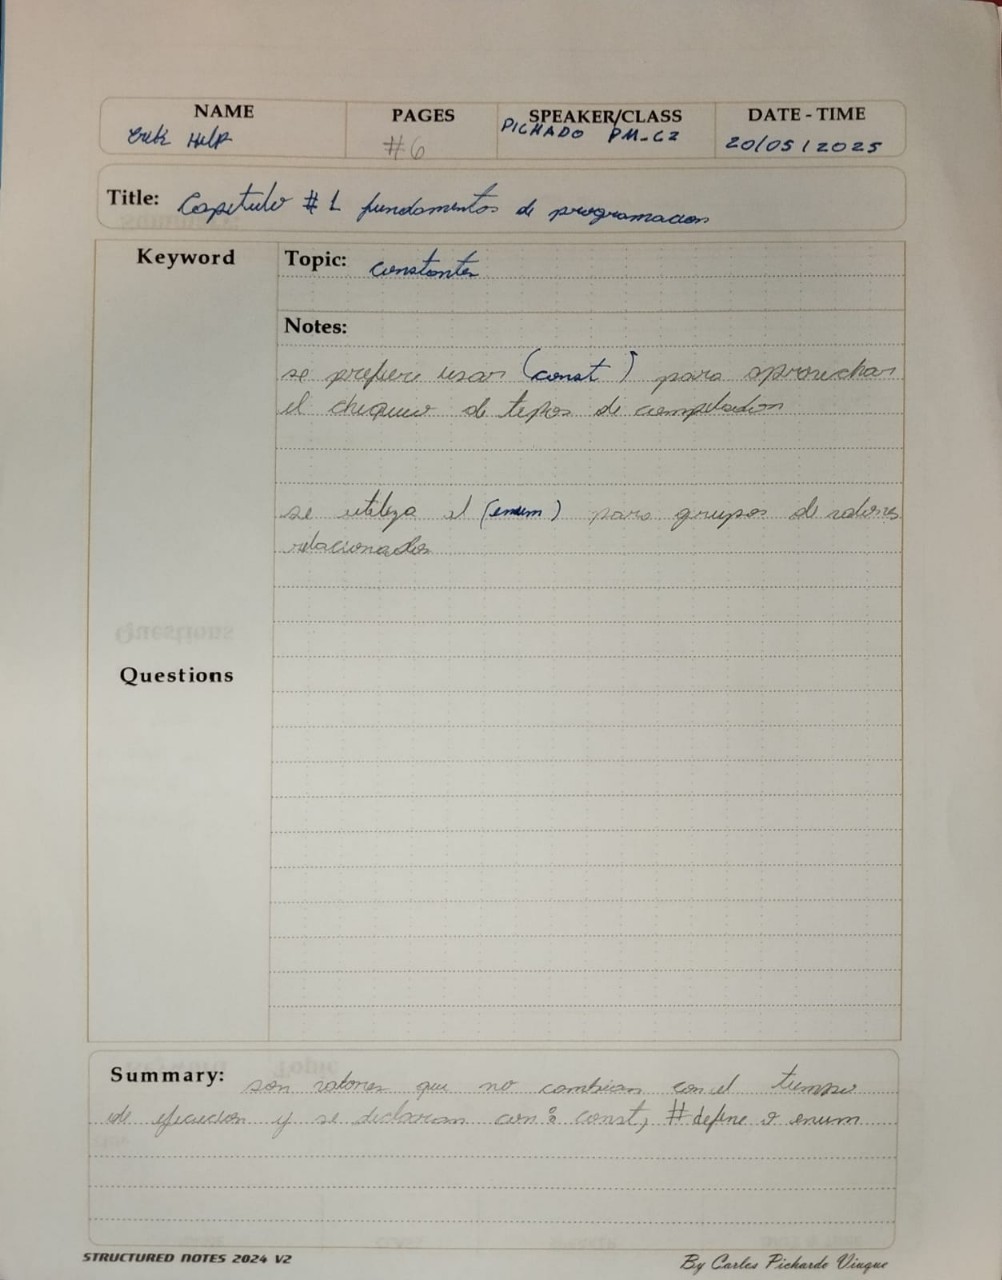 NAME PAGES SPEAKER/CLASS DATE - TIME
Erik Help #6 PICHADO PM-C2 20/05/2025
Title: Capitulo #1 fundamentos de programacion
Keyword
Topic: constantes
Notes:
se prefiere usar (const) para aprovechar
el chequeo de tipos de compilacion
se utiliza el (enum) para grupos de valores
relacionados
Questions
Summary: son valores que no cambian con el tiempo
de ejecucion y se declaran con: const, #define o enum
STRUCTURED NOTES 2024 V2
By Carlos Pichardo Vinque